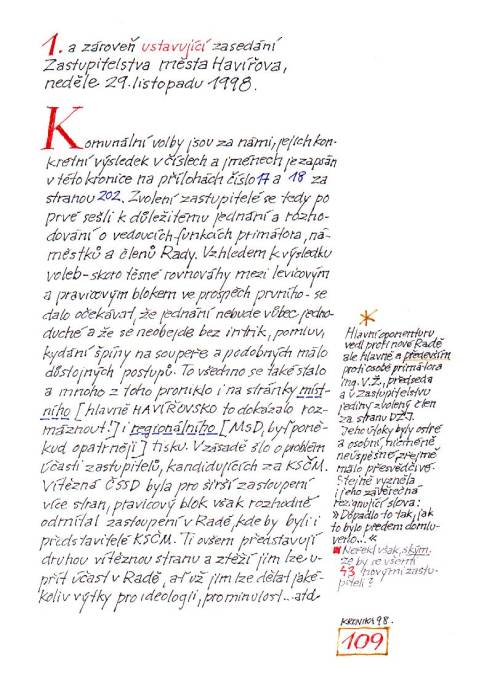 1. a zároveň ustavující zasedání
Zastupitelstva města Havířova,
neděle 29. listopadu 1998.
Komunální volby jsou za námi, jejich kon-
krétní výsledek v číslech a jménech je zapsán
v této kronice na přílohách číslo 17 a 18 za
stranou 202. Zvolení zastupitelé se tedy po
prvé sešli k důležitému jednání a rozho-
dování o vedoucích funkcích primátora, ná-
městků a členů Rady. Vzhledem k výsledku
voleb - skoro těsné rovnováhy mezi levicovým
a pravicovým blokem ve prospěch prvního - se
dalo očekávat, že jednání nebude vůbec jedno-
duché a že se neobejde bez intrik, pomluv,
kydání špíny na soupeře a podobných málo
důstojných postupů. To všechno se také stalo
a mnoho z toho proniklo i na stránky míst-
ního [hlavně HAVÍŘOVSKO to dokázalo roz-
máznout!] i regionálního [MsD, byť poně-
kud opatrněji] tisku. V zásadě šlo o problém
účasti zastupitelů, kandidujících za KSČM.
Vítězná ČSSD byla pro širší zastoupení
více stran, pravicový blok však rozhodně
odmítal zastoupení v Radě, kde by byli i
představitelé KSČM. Ti ovšem představují
druhou vítěznou stranu a ztěží jim lze u-
přít účast v Radě, ať už jim lze dělat jaké-
koliv výtky pro ideologii, pro minulost... atd.
*
Hlavní oponenturu
vedl proti nové Radě
ale hlavně a především
proti osobě primátora
ing. V. Ž., předseda
a v Zastupitelstvu
jediný zvolený člen
za stranu DŽJ.
Jeho útoky byly ostré
a osobní, nicméně
neúspěšné, zřejmě
málo přesvědčivé.
Stejně vyzněla
i jeho závěrečná
rezignující slova:
„Dopadlo to tak, jak
to bylo předem domlu-
veno..."
Neřekl však, s kým,
že by se všemi
43 novými zastu-
piteli?
KRONIKA 98.
109